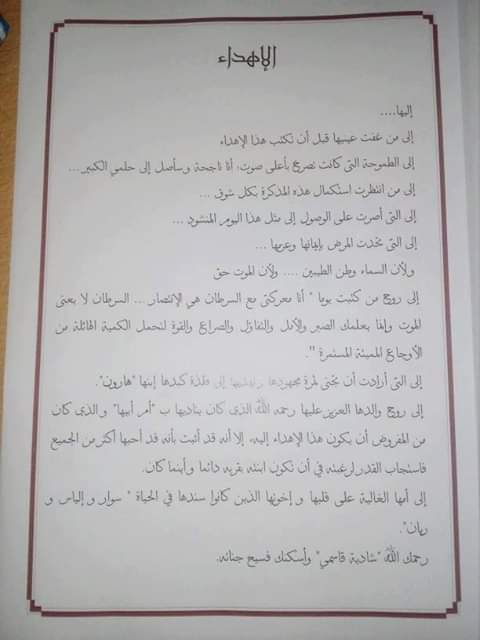 الإهداء
إليها....
إلى من غفت عينيها قبل أن تكتب هذا الإهداء
إلى الطموحة التي كانت تصرح بأعلى صوت: أنا ناجحة وسأصل إلى حلمي الكبير...
إلى من انتظرت استكمال هذه المذكرة بكل شوق ...
إلى التي أصرت على الوصول إلى مثل هذا اليوم المنشود ...
إلى التي تحدت المرض بإيمانها وعزمها ...
ولأن السماء وطن الطيبين .... ولأن الموت حق
إلى روح من كتبت يوما " أنا معركتي مع السرطان هي الإنتصار ... السرطان لا يعني
الموت وإنما يعلمك الصبر والأمل والتفاؤل والصراع والقوة لتحمل الكمية الهائلة من
الأوجاع المميتة المستمرة ".
إلى التي أرادت أن تجني ثمرة مجهودها وتهديها إلى فلذة كبدها إبنها "هارون".
إلى روح والدها العزيز عليها رحمه الله الذي كان يناديها ب "أم أبيها" والذي كان
من المفروض أن يكون هذا الإهداء إليه، إلا أنه قد أثبت بأنه قد أحبها أكثر من الجميع
فاستجاب القدر لرغبته في أن تكون ابنته بقربه دائما وأينما كان.
إلى أمها الغالية على قلبها و إخوتها الذين كانوا سندها في الحياة " سوار و إلياس و
ريان".
رحمك الله "شادية قاسمي" وأسكنك فسيح جنانه.